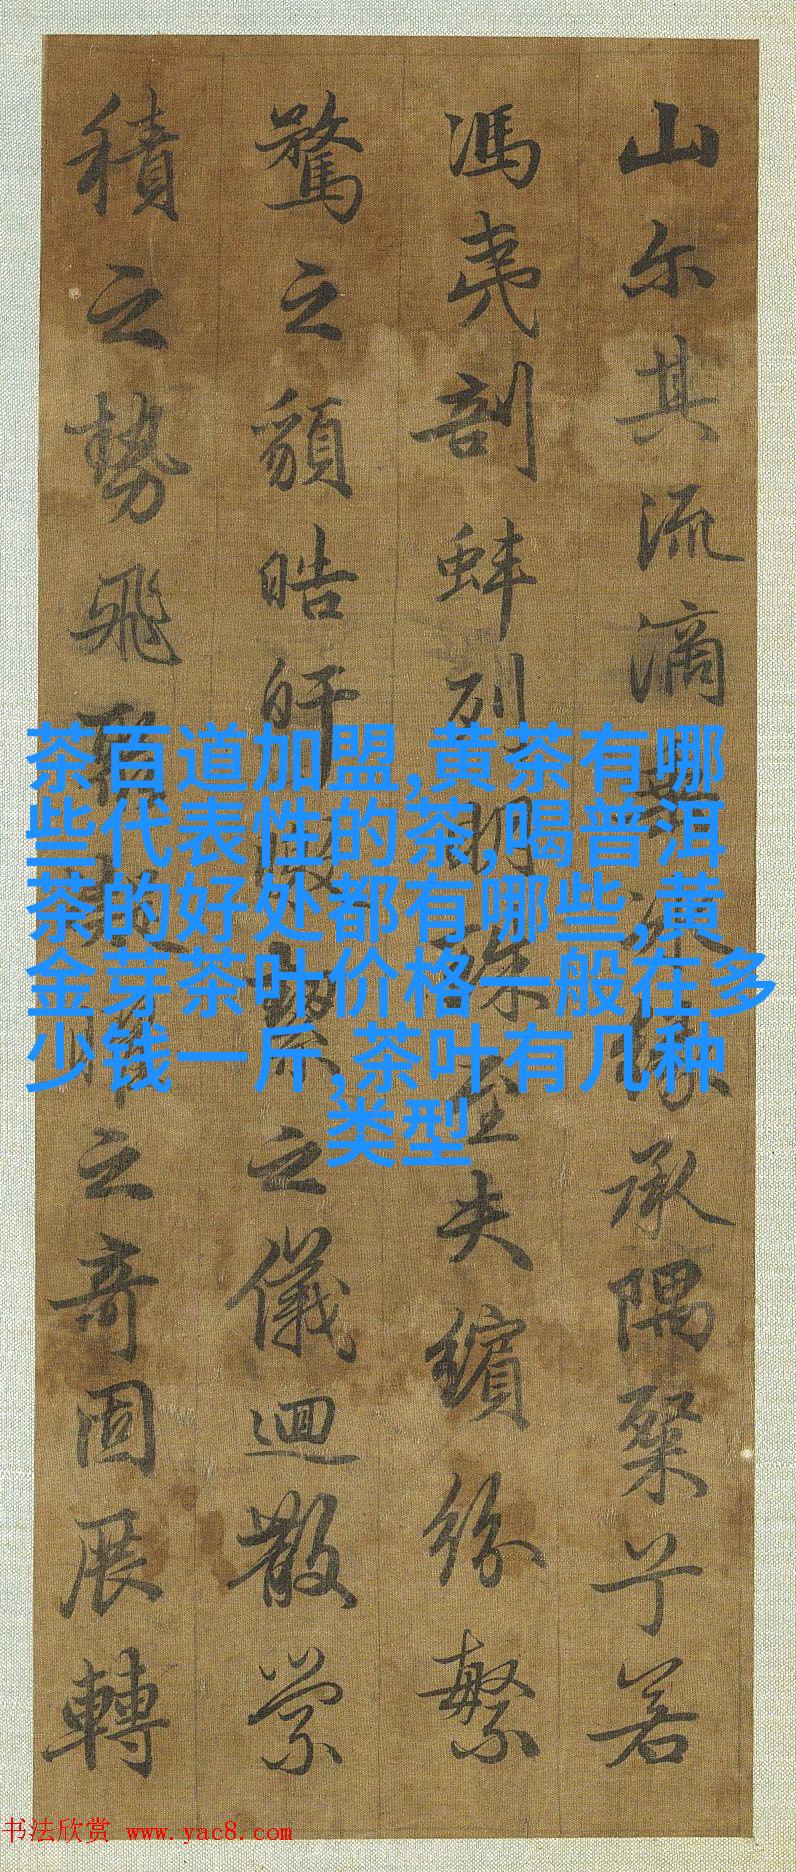 山尔其流滴冰缘承隅粲兮若
馮夷剖蚌列明珠至夫繽紛繁
騖之䫉皓旰之儀迴散縈
積之勢飛聚之奇固展轉
茶百道加盟,黄茶有哪
些代表性的茶,喝普洱
茶的好处都有哪些,黄
金芽茶叶价格一般在多
少钱一斤,茶叶有几种
类型
书法欣赏 www.yac8.com